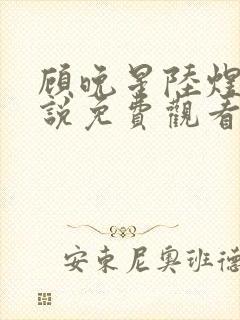 顾晚星陸煌
說免費觀看
安東尼奧班德